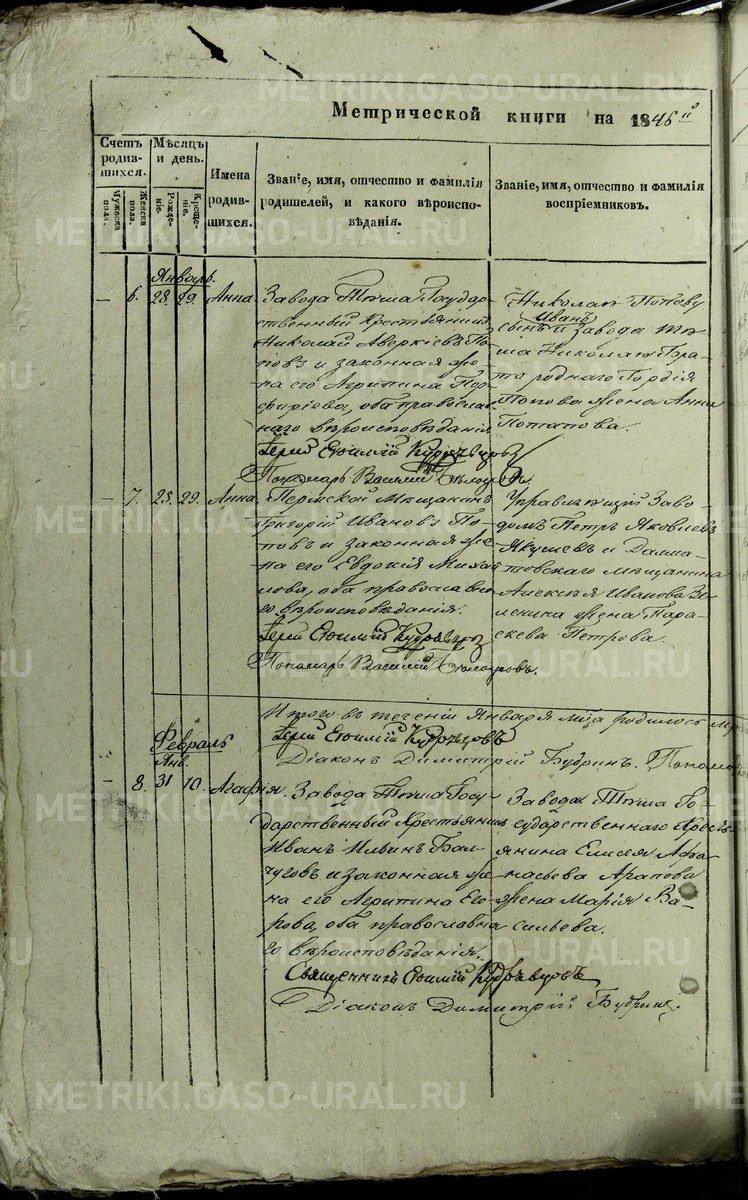 METRIKI.GASO-URAL.RU
Метрической книги на 1845й
Счетъ родив-шихся.
Мужеска пола.
Женска пола.
Мѣсяцъ и день.
Рожде-ніе.
Креще-ніе.
Имена родив-шихся.
Званіе, имя, отчество и фамилія родителей, и какого вѣроиспо-вѣданія.
Званіе, имя, отчество и фамилія воспріемниковъ.
Январь.
— 6. 28 29. Анна
Завода Государ-
ственный Крестьянинъ
Николай Аверкіевъ По-
повъ и законная же-
на его Агрипина Пор-
фиріева, оба православ-
наго вѣроисповѣданія
Іерей Евѳимій
Пономарь Василій
Николай Попову
Иванъ
сынъ и завода
Николая Бра-
та роднаго Гордія
Попова жена Анна
Потапова.
— 7. 25. 29. Анна
Пермской Мѣщанинъ
Григорій Ивановъ По-
повъ и законная же-
на его Евдокія Михай
лова, оба православна
го вѣроисповѣданія.
Іерей Евѳимій
Пономарь Василій
Управляющій Заво-
домъ Петръ Яковлевъ
и Далма-
товскаго мѣщанина
Алексѣя Иванова Зе
ленина жена Пара-
скева Петрова.
Итого въ теченіи Января мца родилось
Іерей Евѳимій
Діаконъ Димитрій Бубринъ.
Февраль
Янв.
— 8. 31 10. Агафія.
Завода Госу-
дарственный Крестьянинъ
Иванъ Ильинъ Бал-
чуговъ и законная же-
на его Агрипина Его-
рова, оба православна
го вѣроисповѣданія.
Священникъ Евѳимій
Діаконъ Димитрій Бубринъ.
Завода Го-
сударственнаго Кресть-
янина Елисея Афа-
насьева Арапова
жена Марія Ва-
сильева.